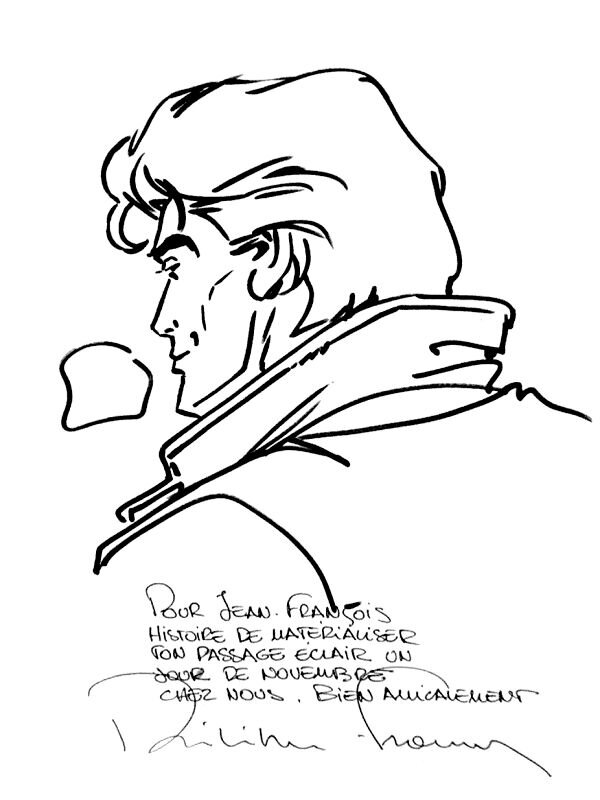 POUR JEAN-FRANÇOIS
HISTOIRE DE MATÉRIALISER
TON PASSAGE ÉCLAIR UN
JOUR DE NOVEMBRE
CHEZ NOUS. BIEN AMICALEMENT